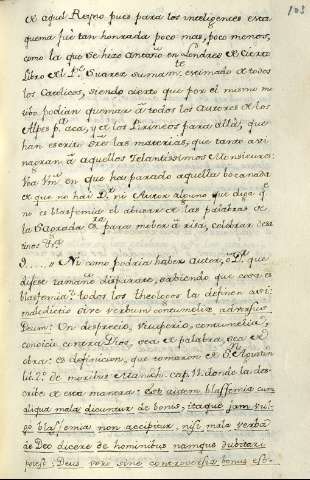 103
de aquel Reyno pues para los inteligentes esta
quema fuè tan honrada poco mas, poco menos,
como la que se hizo antaño en Londres de cierto
Libro del Pe. Suarez sumamte. estimado de todos
los Catolicos, siendo cierto que por el mismo mo
tivo podian quemar à todos los Autores de los
Alpes pa. aca, y de los Pirineos para allà, que
han escrito sre las materias, que tanto avi
nagran à aquellos Zelantissimos Monsieures.
Vea Vm. en que ha parado aquella bocanada
de que no hai Dr. ni Autor alguno que diga qe.
no es blasfemia el abusar de las palabras de
la Sagrada para mober à risa, celebrar desa
tinos &a.
9..... Ni como podria haber Autor, ò Dr. que
dijese tamaño disparate, sabiendo que cosa es
blasfemia? todos los theologos la definen assi:
maledictio sive verbum contumeliæ adversus
Deum: Un desprecio, vituperio, contumelia,
convicio contra Dios, sea de palabra, sea de
obra: es definicion, que tomaron de Sn. Agustin
lib. 2o. de moribus Manich. cap. 11. donde la des
cribe de esta manera: est autem blasfemia cum
aliqua mala dicuntur de bonis, itaque jam vul
go blasfemia non accipitur, nisi mala verba
de Deo dicere de hominibus namque dubitari
potest: Deus vero sine controversia bonus est.